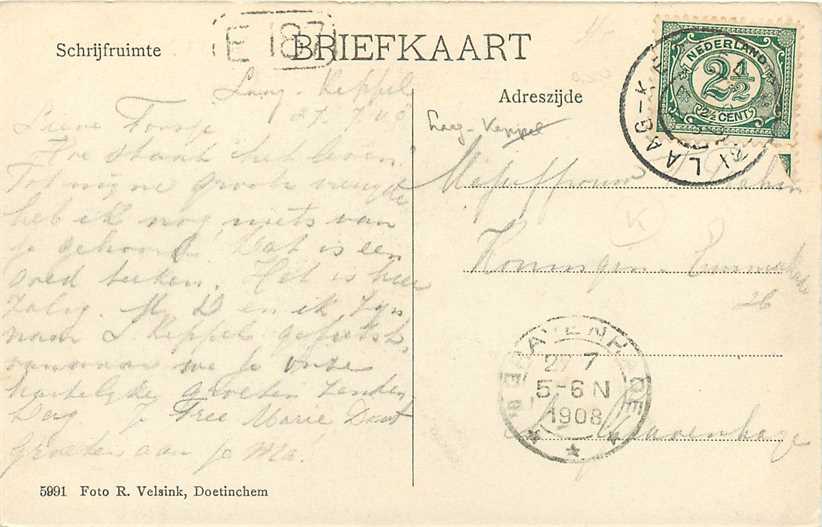 E 187
BRIEFKAART
Schrijfruimte
Adreszijde
NEDERLAND
2½
2½ CENT
LAAG-K
Laag-Keppel
27.7.08
Lieve Toosje
Hoe staat het leven
Tot mijne groote vreugde
heb ik nog niets van
je gehoord. Dat is een
goed teeken. Het is hier
zalig. M. D en ik zijn
naar L. Keppel gefietst,
vanwaar we je onze
hartelijke groeten zenden
Dag Je Tree Marie
Groeten aan je Ma!
Laag-Keppel
Mejuffrouw
Koningin-Emmakade
26
's Gravenhage
'S GRAVENHAGE
27 7
5-6 N
1908
5991 Foto R. Velsink, Doetinchem